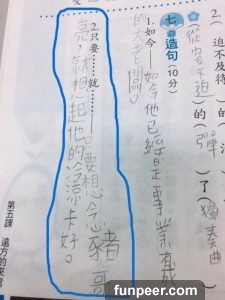 2.(迫不及待)的(
(從容不迫)的(彈)了(獨奏曲)
七、造句(10分)
1.如今——如今他已經是事業有成
的大老闆。
2.只要……就……只要想念豬哥
豬
亮,就想起他的冷涼卡好。
第五課 遠方的來
funpeer.com